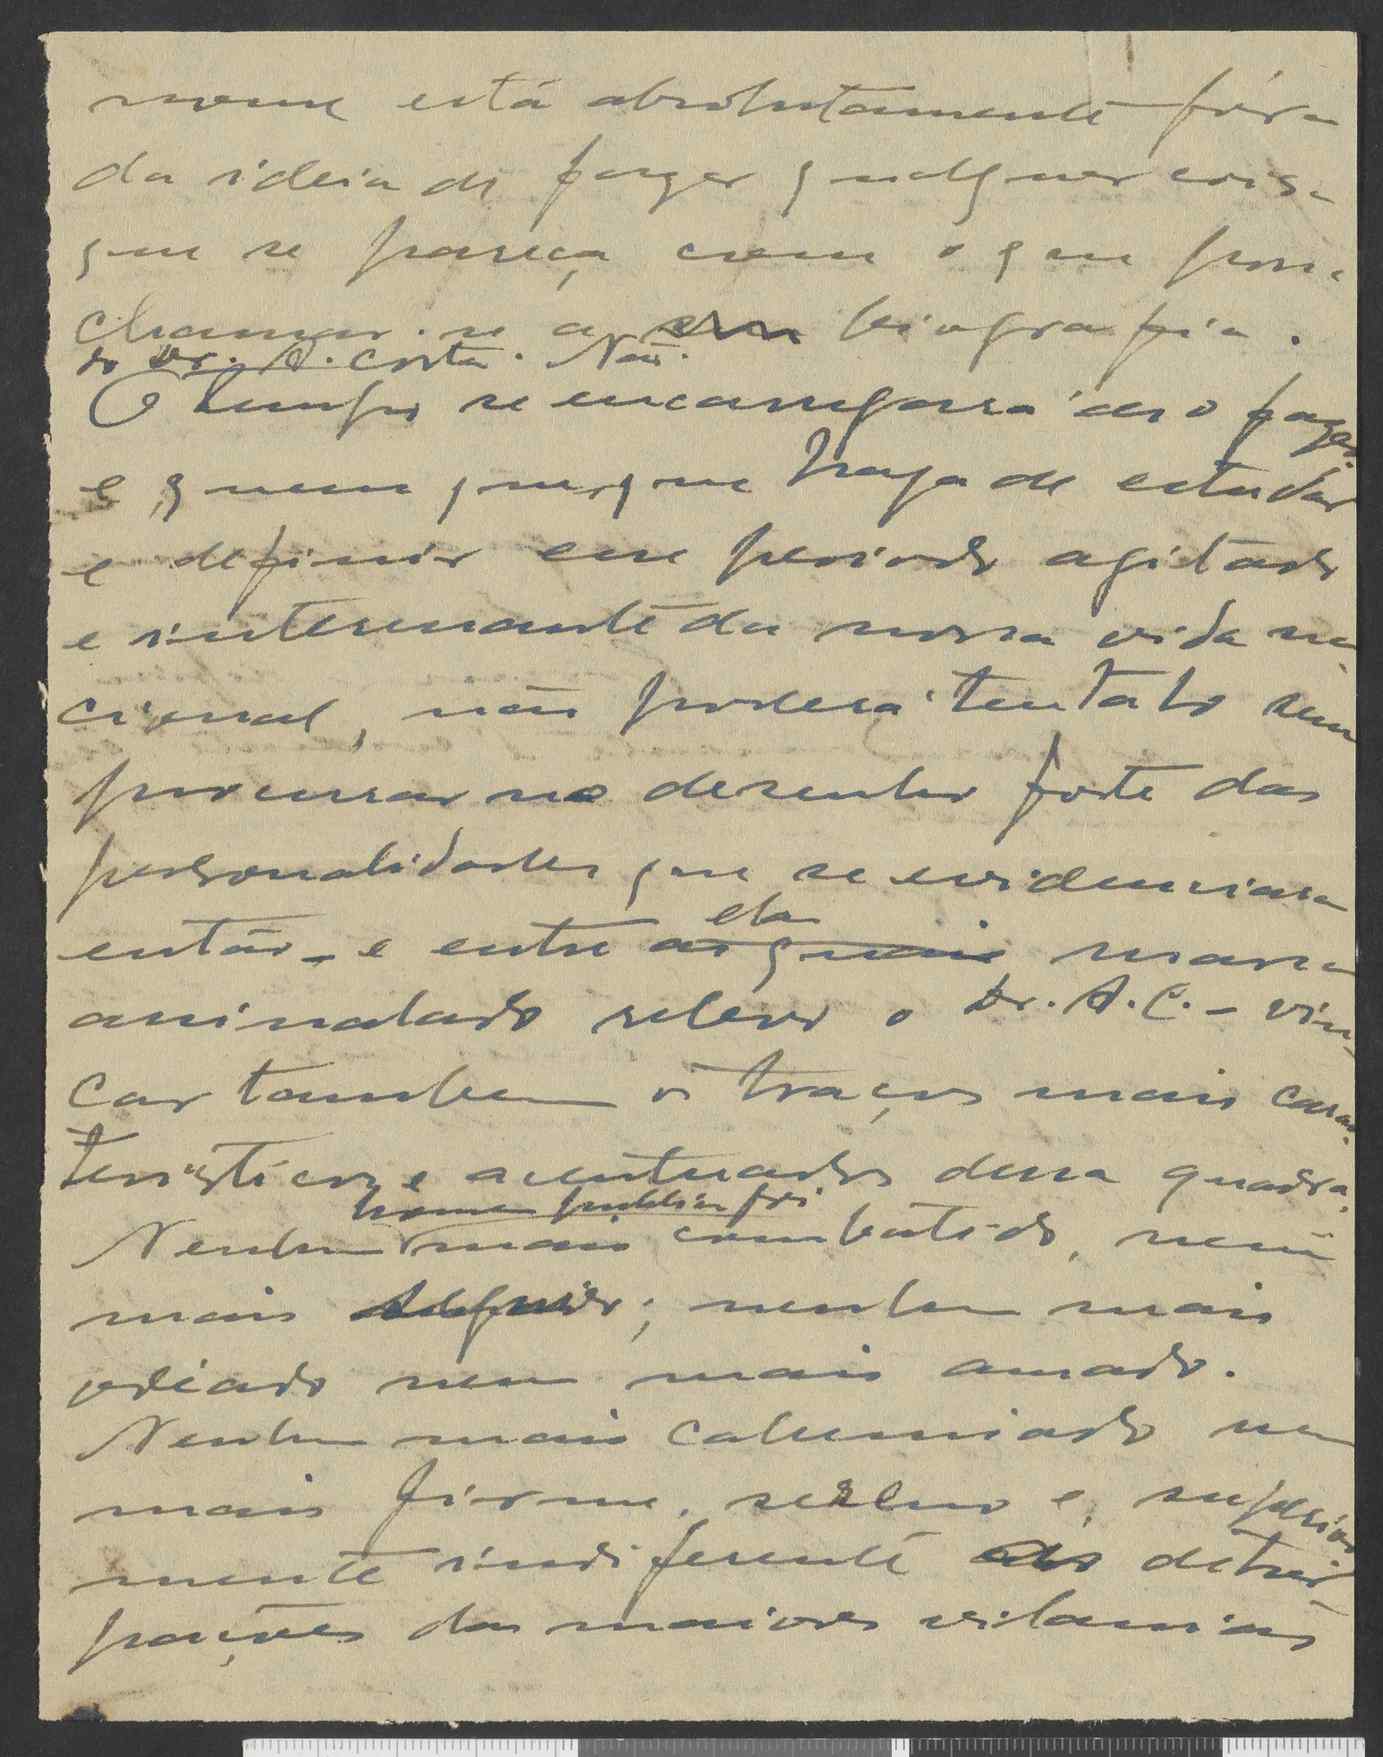 nome está absolutamente fóra
da ideia de fazer qualquer coisa
que se pareça com o que possa
chamar-se a biografia.
do Dr. A. Costa. Não.
O tempo se encarregará de o fazer
e quem quer que haja de estudar
e definir esse periodo agitado
e interessante da nossa vida na
cional, não poderá tenta-lo sem
procurar no desenho forte das
personalidades que se evidenciaram
então - e entre elas as quais marca
assinalado relevo o Dr. A. C. - vin-
car tambem os traços mais cara-
teristicos e acentuados dessa quadra.
homem publico foi
Nenhum mais combatido, nem
mais seguido; nenhum mais
odiado nem mais amado.
Nenhum mais caluniado nem
mais firme, sereno e, superior
mente indiferente ás detur
pações das maiores vilanias